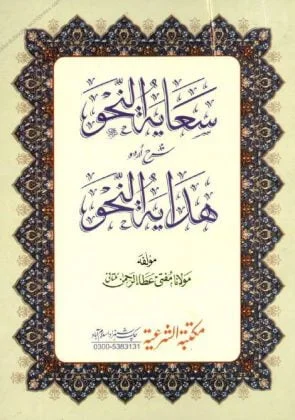 سعاية النحو
شرح اردو
هداية النحو
مؤلفہ
مولانا مفتی عطاء الرحمن ملتانی
مكتبة الشرعية
0300-5383131